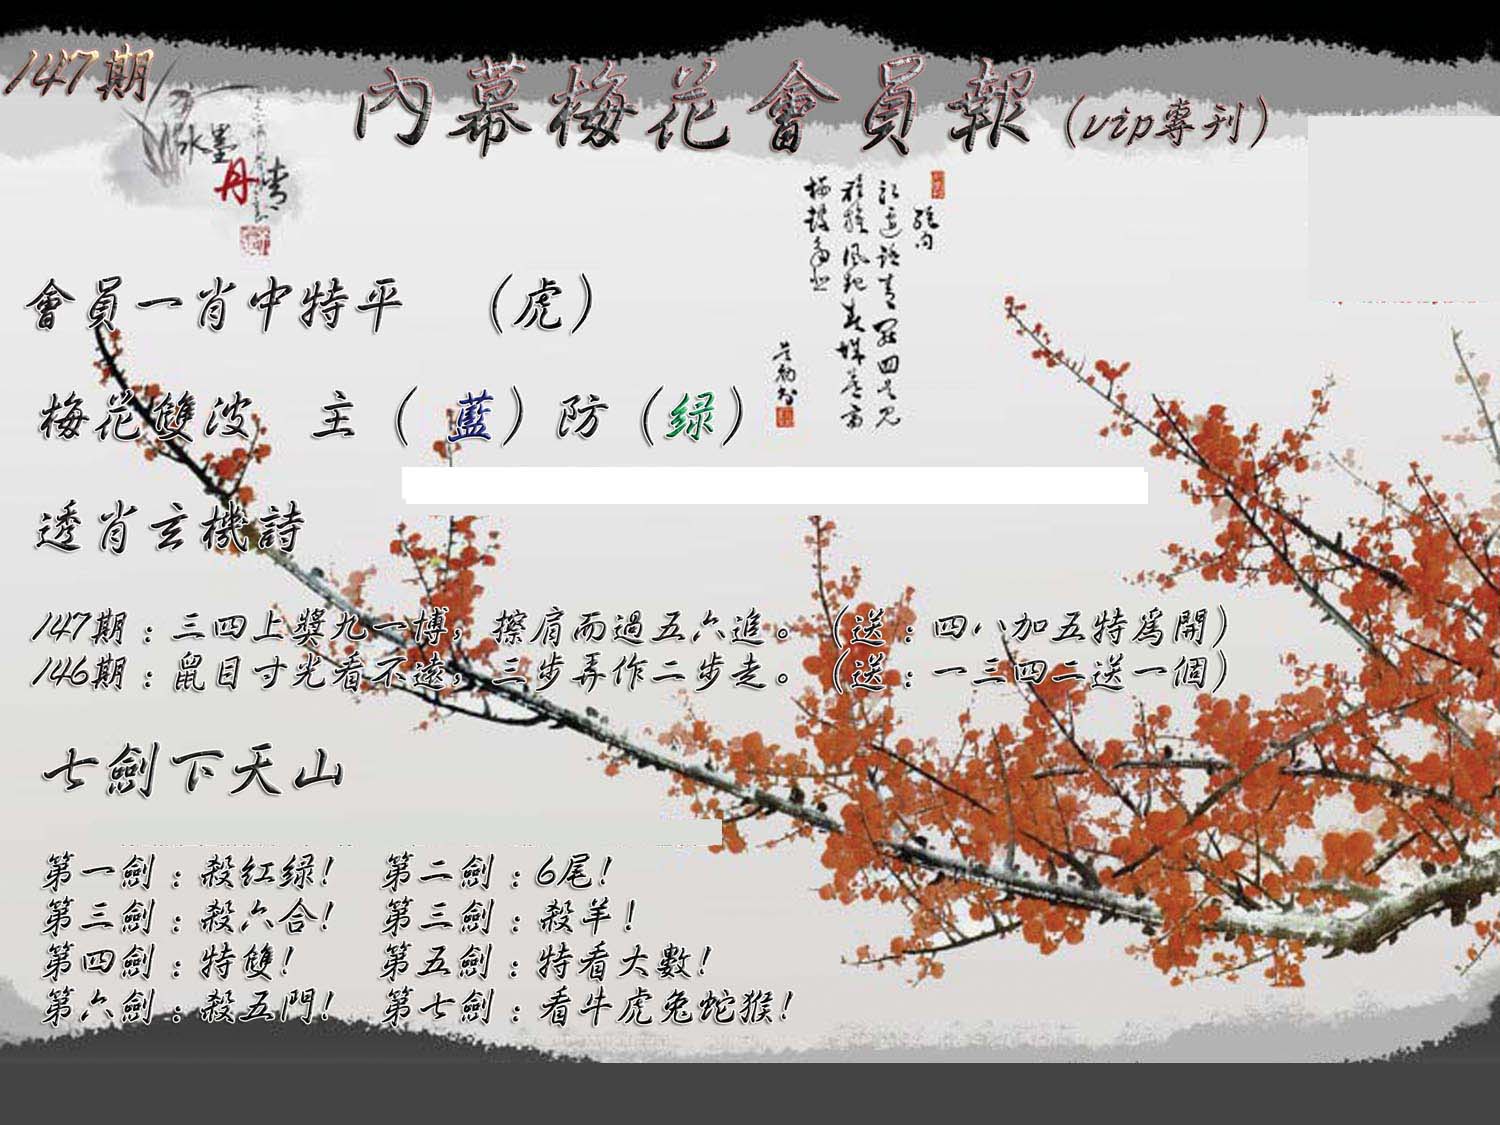 147期
內幕梅花會員報(vip專刊)
水墨
丹青
會員一肖中特平 (虎)
梅花雙波 主(藍)防(绿)
透肖玄機詩
147期:三四上獎九一博,擦肩而過五六進。(送:四八加五特爲開)
146期:鼠目寸光看不遠,三步弄作二步走。(送:一三四二送一個)
七劍下天山
第一劍:殺紅绿! 第二劍:6尾!
第三劍:殺六合! 第三劍:殺羊!
第四劍:特雙! 第五劍:特看大數!
第六劍:殺五門! 第七劍:看牛虎兔蛇猴!